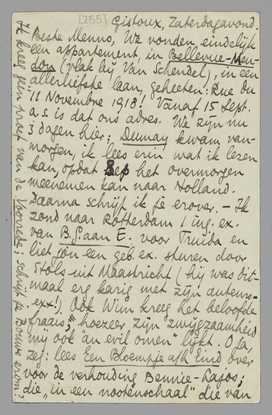 [255]
Gistoux, Zaterdagavond.
Beste Menno, We vonden eindelijk
een appartement in Bellevue-Meu-
don (vlak bij Van Schendel), in een
allerliefste laan, geheeten: Rue du
11 Novembre 1918! Vanaf 15 Sept.
a.s. is dat ons adres. We zijn nu
3 dagen hier; Dumay kwam van-
morgen, ik lees erin wat ik lezen
kan, opdat Jep het overmorgen
meenemen kan naar Holland.
Daarna schrijf ik je erover. - Ik
zond naar Rotterdam 1 ing. ex.
van B. Gaan E. voor Truida en
liet jou een geb. ex. sturen door
Stols uit Maastricht (hij was dit-
maal erg karig met zijn auteurs-
ex.!) Ook Wim kreeg het beloofde
fraais, hoezeer zijn zwijgzaamheid
my ook "an evil omen" lijkt. O ja,
zeg: lees Een Bloempje aan 't Eind over
voor de verhouding Bennie-Lajos;
die "in een nooteschaal" die van
Ik kreeg geen proef van de Voorrede; schrijf je Bouws erom?